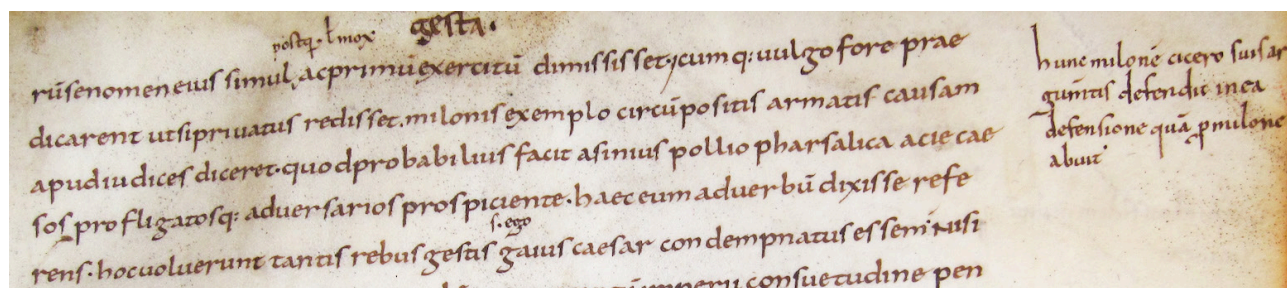 postq· ł mox gesta·
rūsenomen eius simul acprimū exercitū dimississet· icumq: uulgo fore prae
dicarent utsipriuatus redisset. milonis exemplo circūpositis armatis causam
apudiudices diceret· quodprobabilius facit asinius pollio pharsalica acie cae
sos profligatosq: aduersarios prospiciente· haec eum aduerbū dixisse refe
s· ego
rens· hocuoluerunt tantis rebus gestis gaius caesar condempnatus essem nisi
imperii consuetudine pen
hunc milonē cicero suis ar
gumtis defendit in ea
defensione quā p milone
abuit